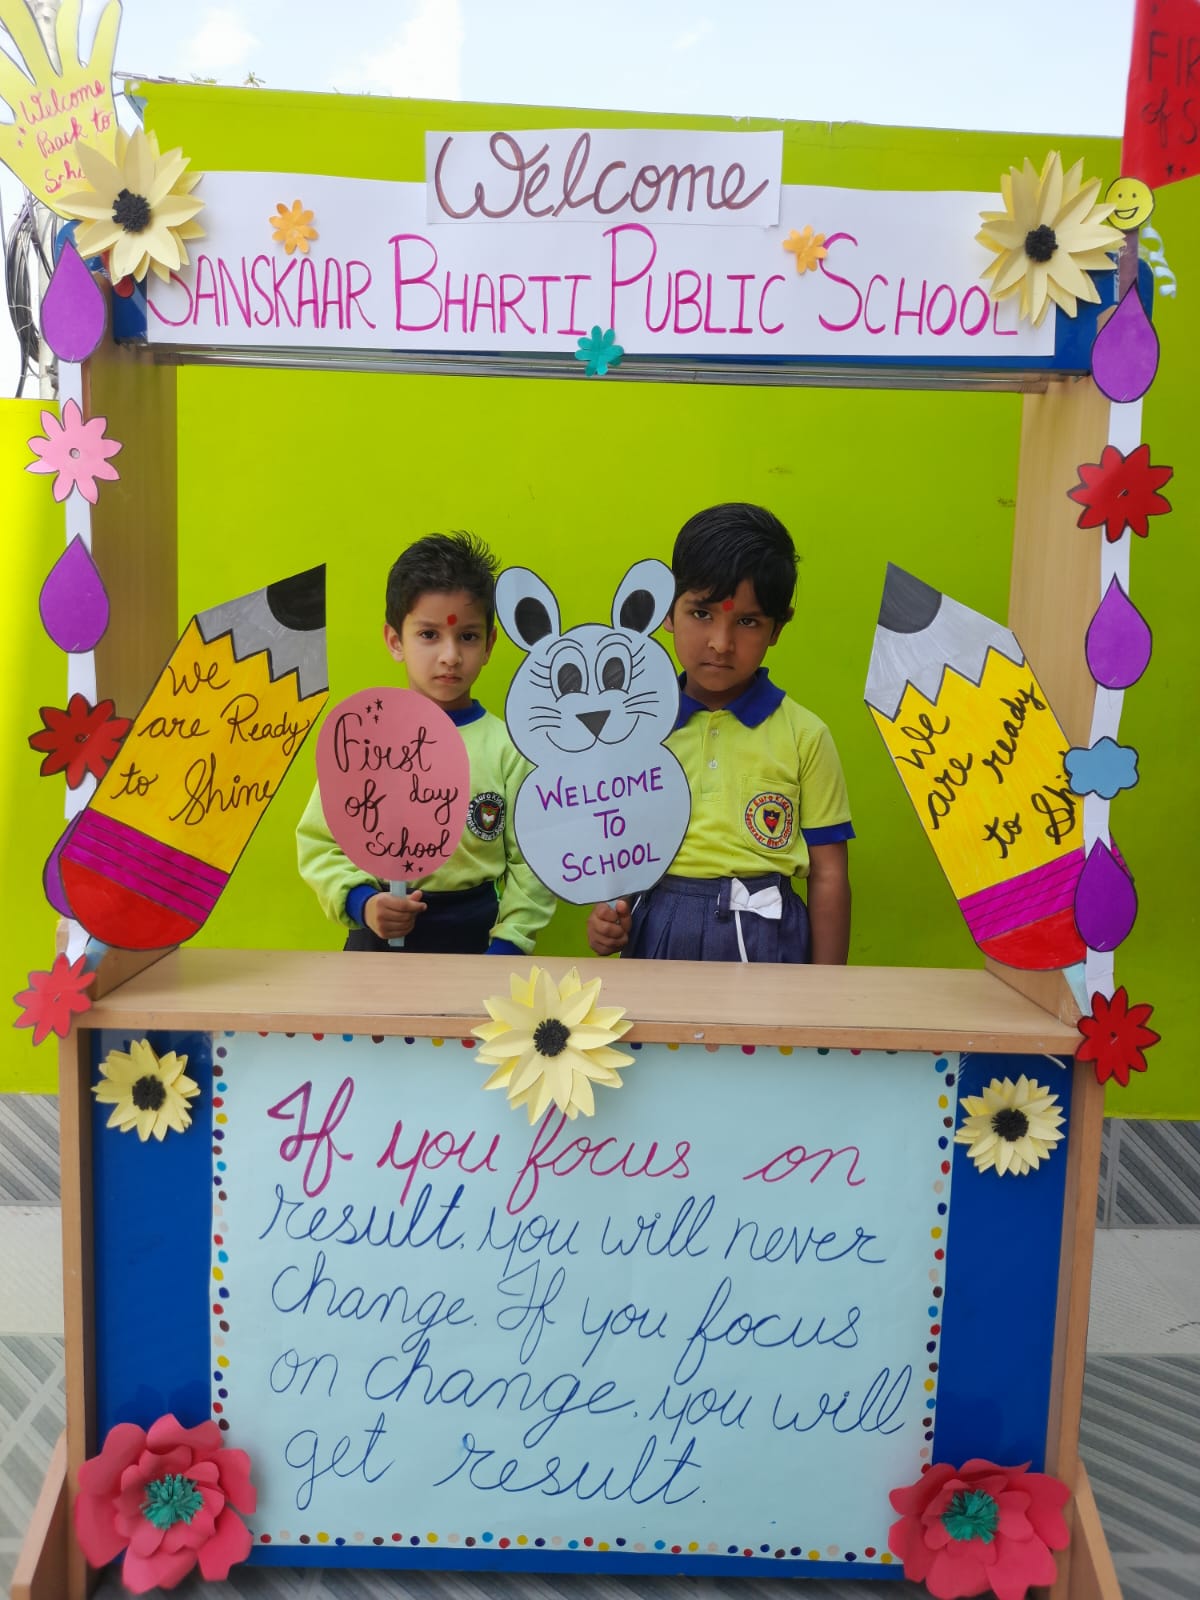 Welcome
Back to
FIR
of S
Welcome
SANSKAAR BHARTI PUBLIC SCHOOL
We
are Ready
to Shine
First
of day
School
WELCOME
TO
SCHOOL
Euro Kids
We
are ready
to Shi
If you focus on
result, you will never
change. If you focus
on change, you will
get result.